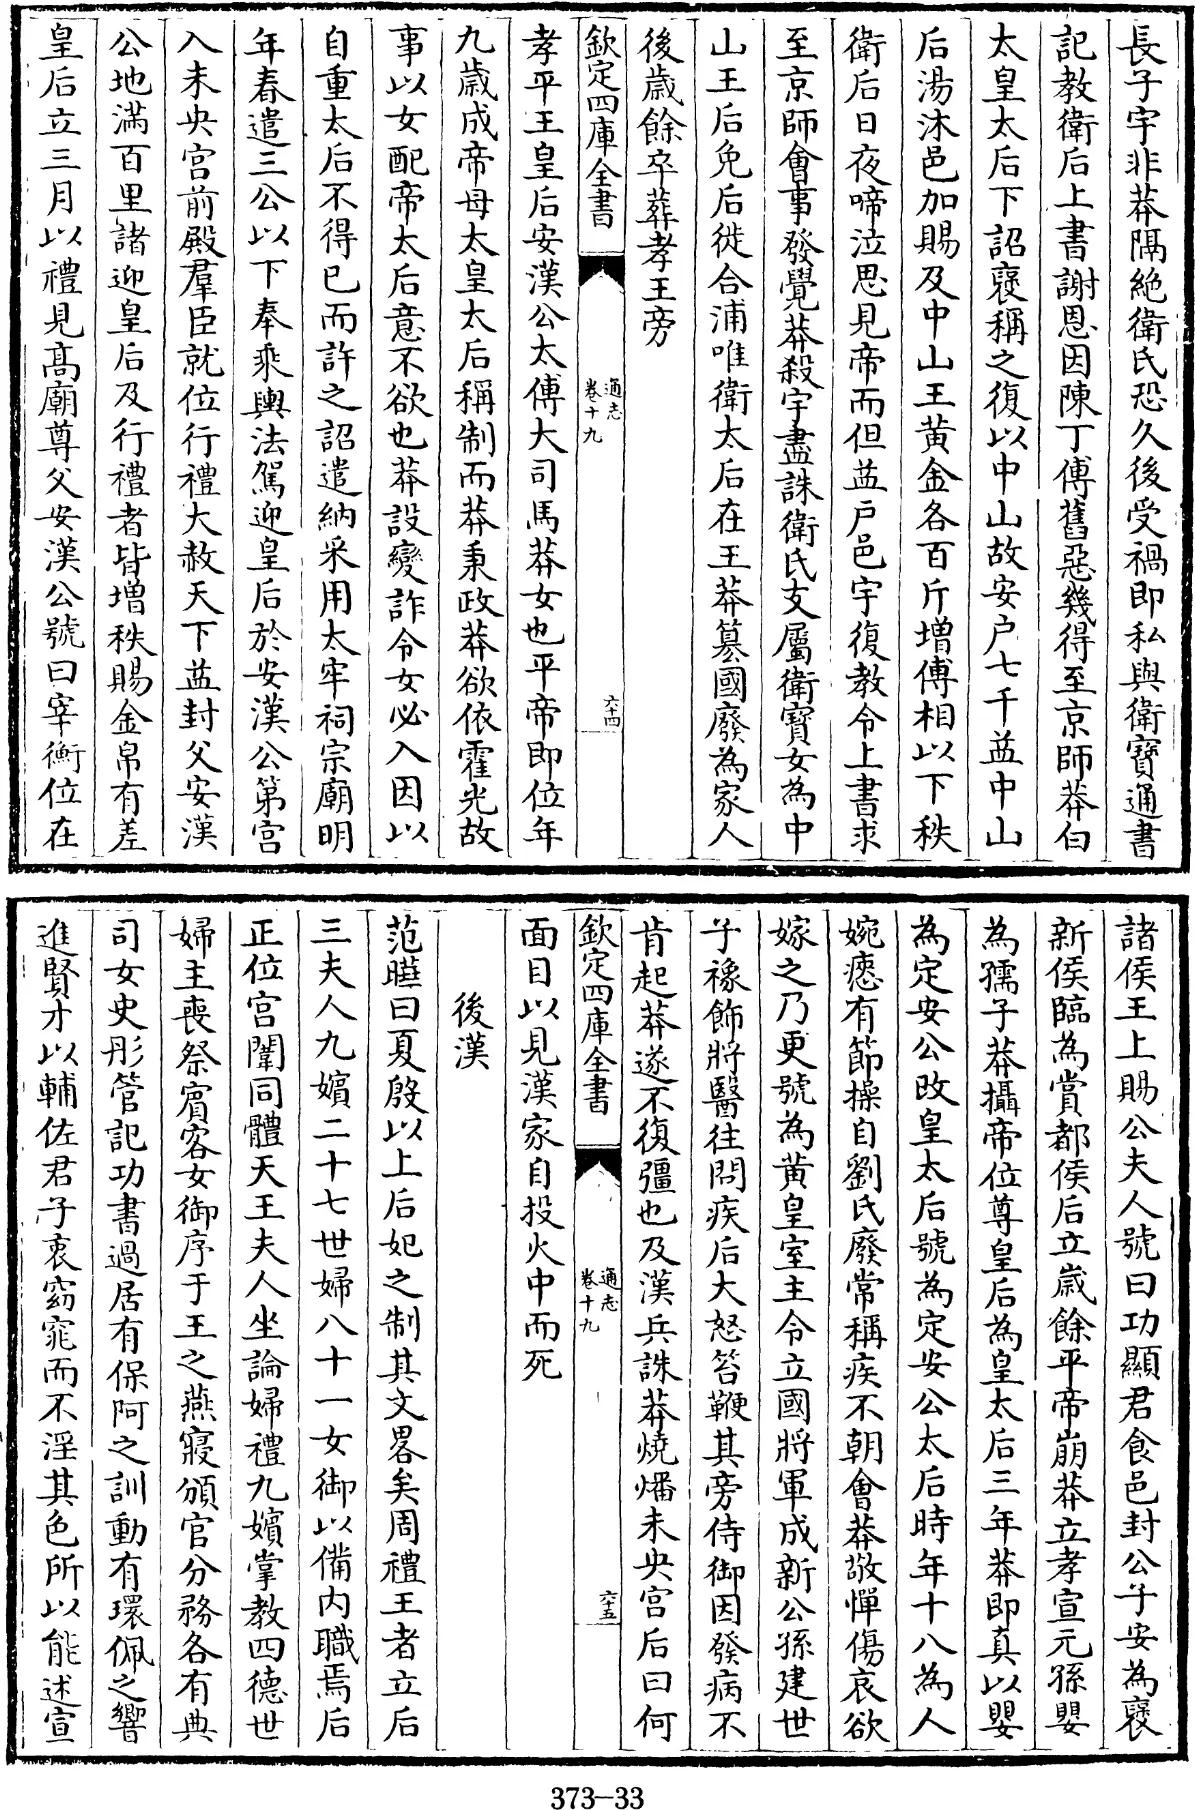 長子宇非莽隔絶衛氏恐久後受禍即私與衛寶通書
記教衛后上書謝恩因陳丁傅舊惡幾得至京師莽白
太皇太后下詔襃稱之復以中山故安户七千益中山
后湯沐邑加賜及中山王黄金各百斤增傅相以下秩
衛后日夜啼泣思見帝而但益戶邑宇復教令上書求
至京師會事發覺莽殺宇盡誅衛氏支屬衛寶女為中
山王后免后徙合浦唯衛太后在王莽簒國廢為家人
後歲餘卒葬孝王旁
欽定四庫全書
通志
卷十九
六十四
孝平王皇后安漢公太傅大司馬莽女也平帝即位年
九歲成帝母太皇太后稱制而莽秉政莽欲依霍光故
事以女配帝太后意不欲也莽設變詐令女必入因以
自重太后不得已而許之詔遣納采用太牢祠宗廟明
年春遣三公以下奉乘輿法駕迎皇后於安漢公第宫
入未央宫前殿羣臣就位行禮大赦天下益封父安漢
公地滿百里諸迎皇后及行禮者皆增秩賜金帛有差
皇后立三月以禮見髙廟尊父安漢公號曰宰衡位在
諸侯王上賜公夫人號曰功顯君食邑封公子安為襃
新侯臨為賞都侯后立嵗餘平帝崩莽立孝宣元孫嬰
為孺子莽攝帝位尊皇后為皇太后三年莽即真以嬰
為定安公改皇太后號為定安公太后時年十八為人
婉瘱有節操自劉氏廢常稱疾不朝會莽敬憚傷哀欲
嫁之乃更號為黄皇室主令立國將軍成新公孫建世
子襐飾將醫往問疾后大怒笞鞭其旁侍御因發病不
肯起莽遂不復彊也及漢兵誅莽燒燔未央宫后曰何
欽定四庫全書
通志
卷十九
六十五
面目以見漢家自投火中而死
後漢
范曄曰夏殷以上后妃之制其文畧矣周禮王者立后
三夫人九嬪二十七世婦八十一女御以備内職焉后
正位宫闈同體天王夫人坐論婦禮九嬪掌教四德世
婦主喪祭賓客女御序于王之燕寢頒官分務各有典
司女史彤管記功書過居有保阿之訓動有環佩之響
進賢才以輔佐君子哀窈窕而不淫其色所以能述宣
373-33